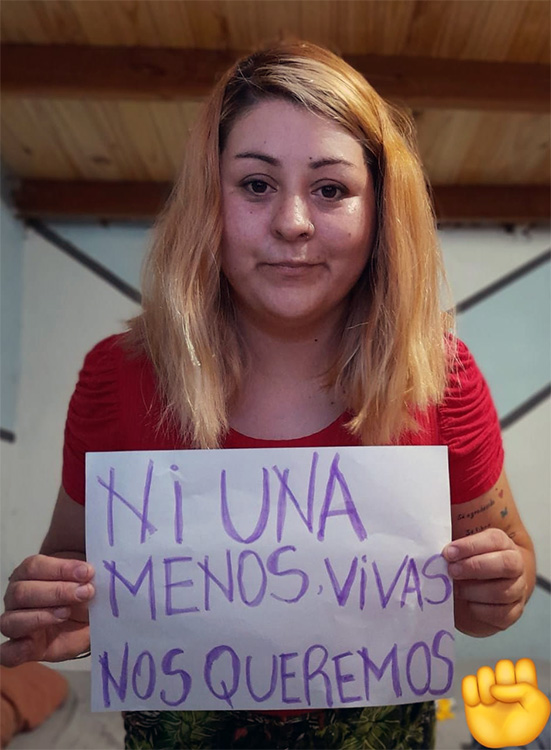 NI UNA
MENOS, VIVAS
NOS QUEREMOS